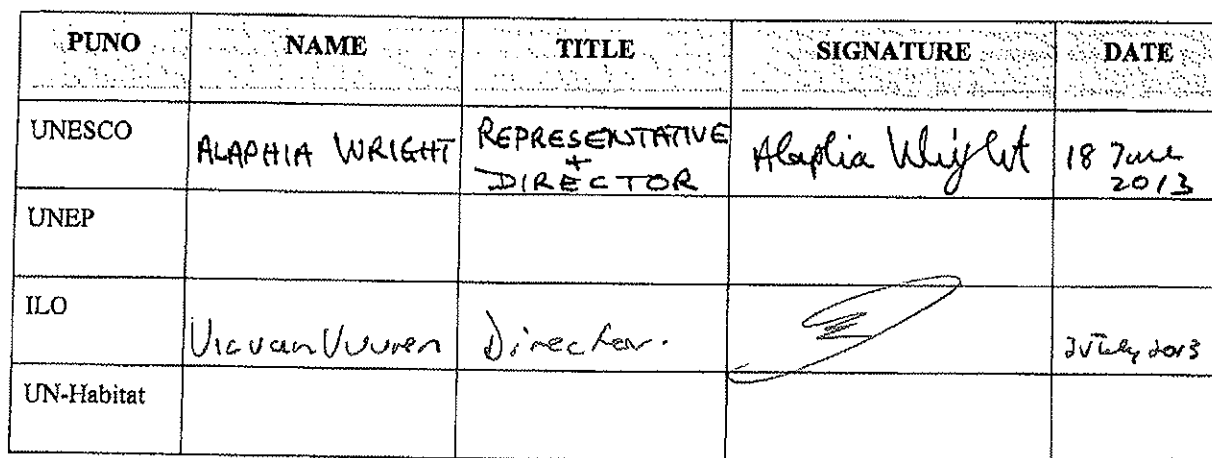 PUNO NAME TITLE SIGNATURE DATE
UNESCO ALAPHIA WRIGHT REPRESENTATIVE + DIRECTOR Alaphia Wright 18 June 2013
UNEP
ILO Vic van Vuuren Director. July 2013
UN-Habitat